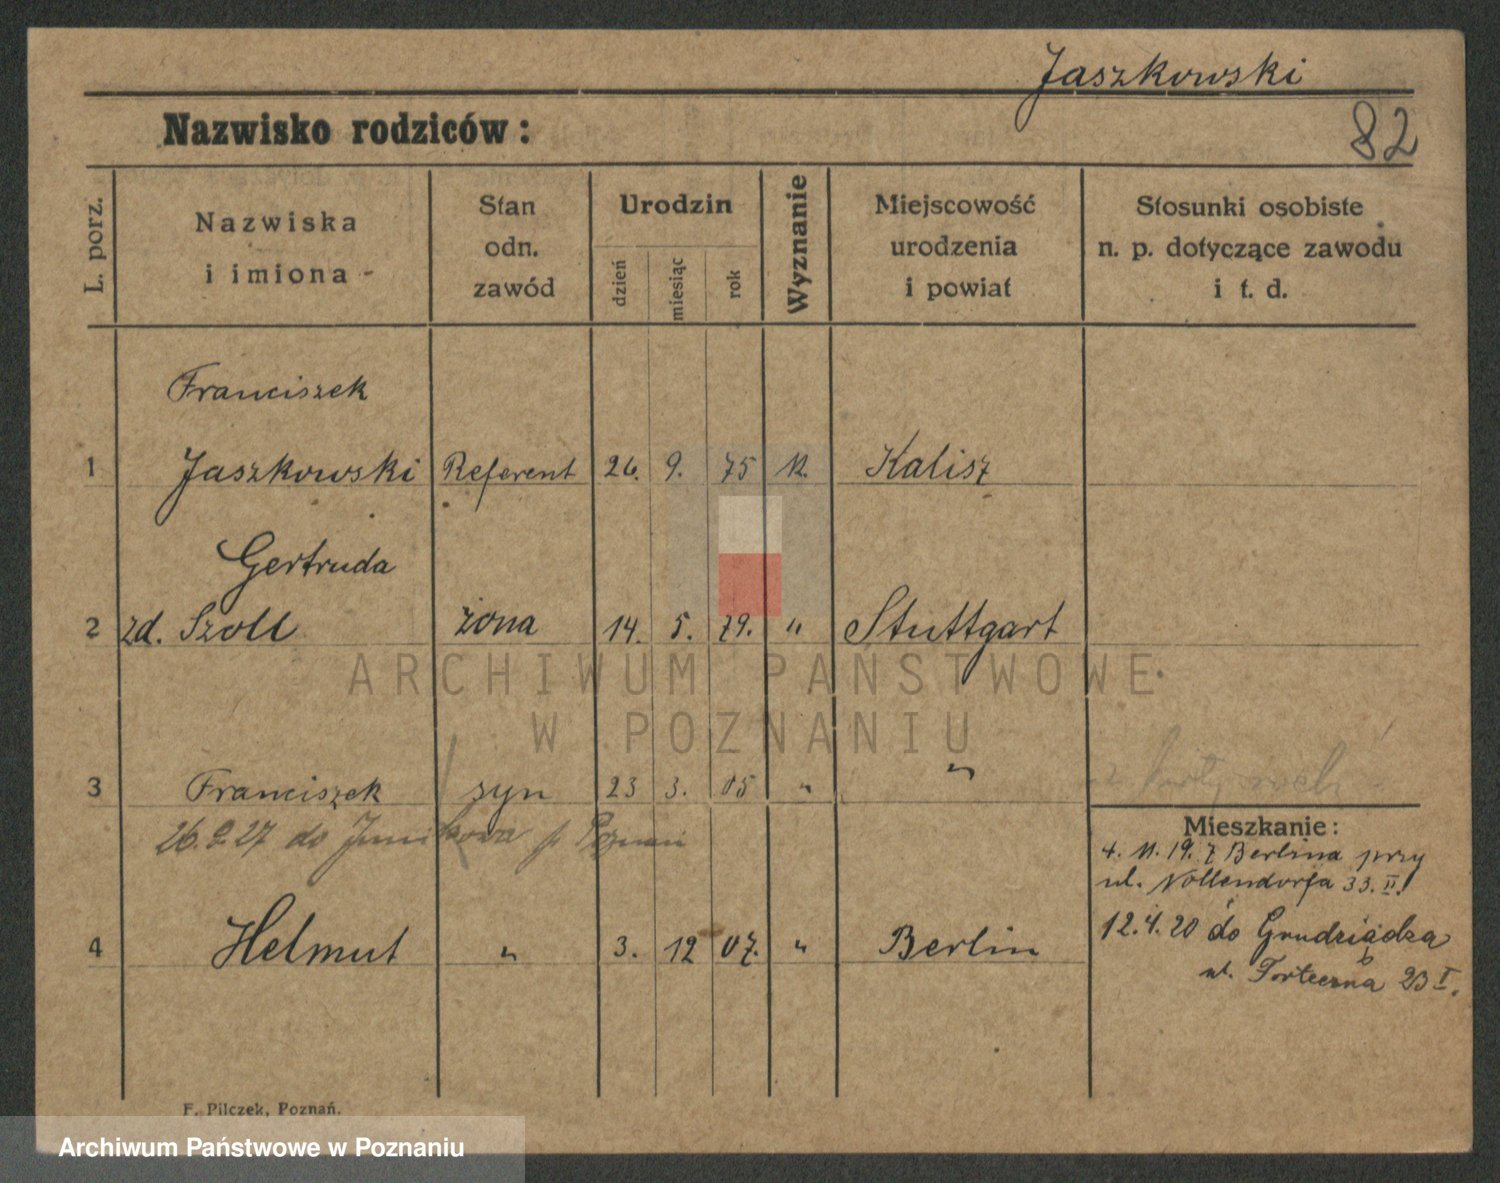 Jaszkowski
Nazwisko rodziców:
82
L. porz.
Nazwiska
i imiona
Stan
odn.
zawód
Urodzin
dzień
miesiąc
rok
Wyznanie
Miejscowość
urodzenia
i powiat
Stosunki osobiste
n. p. dotyczące zawodu
i t. d.
Franciszek
1 Jaszkowski Referent 26. 9. 75 k. Kalisz
Gertruda
2 zd. Szoll żona 14. 5. 79. " Stuttgart
ARCHIWUM PAŃSTWOWE
W POZNANIU
3 Franciszek syn 23 3. 05 " "
26.9.27 do Junikowa p. Poznań
Mieszkanie:
4. 11. 19. z Berlina przy
ul. Nollendorfa 33. II.
4 Helmut " 3. 12 07. " Berlin
12.4.20 do Grudziądza
ul. Forteczna 23 I.
F. Pilczek, Poznań.
Archiwum Państwowe w Poznaniu